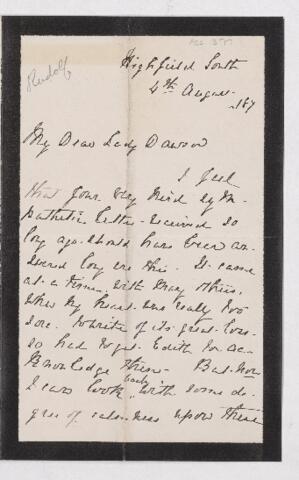 Rudolf
Highfield South
4th August
187
My Dear Lady Dawson
I feel
that your very kind sym-
pathetic letter received so
long ago should have been an-
swered long ere this. It came
at a time, with many others,
when my heart was really too
sore to write of its great loss
so had to get Edith to ac-
knowledge them. But now
I can look back with some de-
gree of calmness upon these